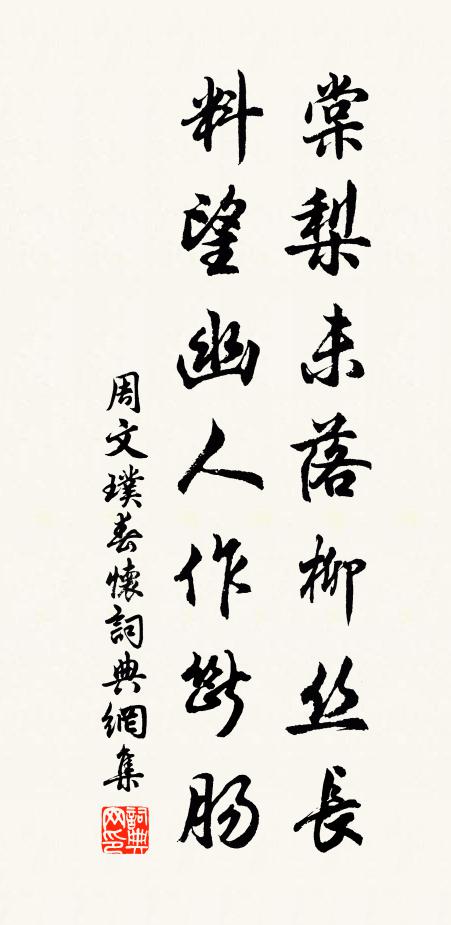 棠梨未落柳丝長
料望幽人作斷肠
周文璞春懷詞典網集
詞典网印